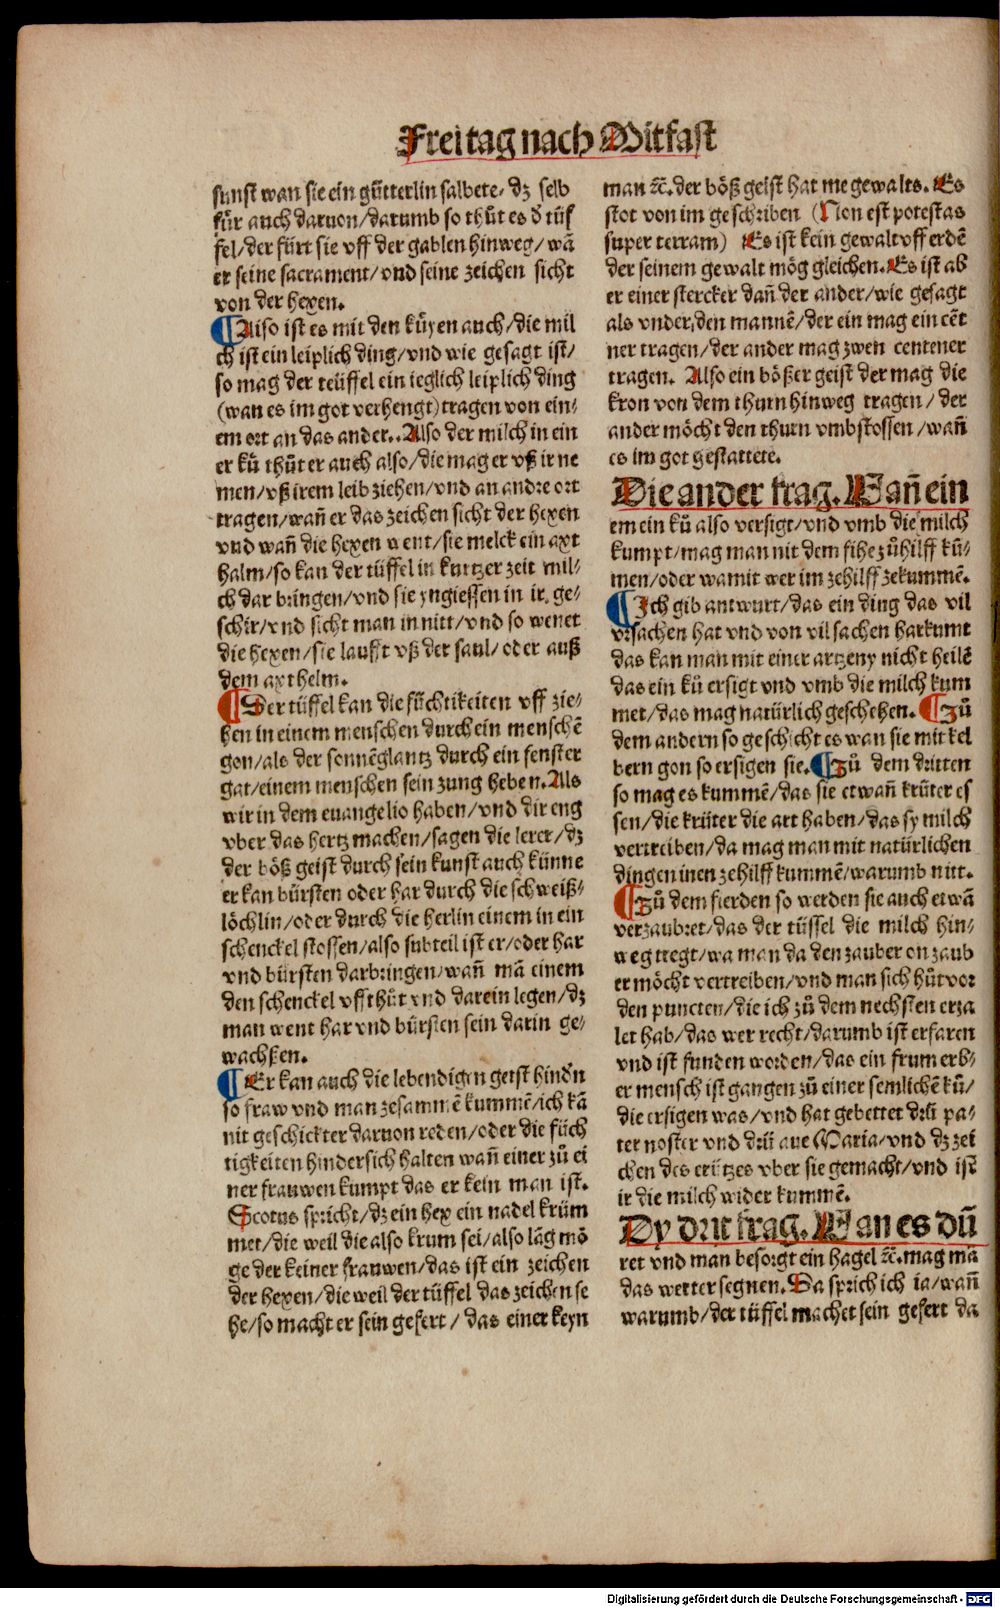 Freitag nach Mitfast
sunst wan sie ein gütterlin salbete, dz selb
für auch daruon/darumb so thůt es d̕ tüf
fel/der fürt sie vff der gablen hinweg/wā
er seine sacrament/vnd seine zeichen sicht
von der hexen.
¶ Aliso ist es mit den küyen auch/die mil
ch ist ein leiplich ding/vnd wie gesagt ist/
so mag der teüffel ein ieglich leiplich ding
(wan es im got verhengt) tragen von ein⸗
em ort an das ander.. Also der milch in ein
er ků thůt er auch also/die mag er vß ir ne
men/vß irem leib ziehen/vnd an andre ort
tragen/wañ er das zeichen sicht der hexen
vnd wañ die hexen went/sie melck ein axt
halm/so kan der tüffel in kurtzer zeit mil⸗
ch dar bringen/vnd sie yngiessen in ir ge⸗
schir/vnd sicht man in nitt/vnd so wenet
die hexen/sie laufft vß der saul/oder auß
dem axthelm.
¶ Der tüffel kan die füchtikeiten vff zie⸗
hen in einem menschen durch ein menschē
gon/als der sonnēglantz durch ein fenster
gat/einem menschen sein zung heben. Als
wir in dem euangelio haben/vnd dir eng
vber das hertz machen/sagen die lerer/dz
der böß geist durch sein kunst auch künne
er kan bürsten oder har durch die schweiß⸗
löchlin/oder durch die herlin einem in ein
schenckel stossen/also subteil ist er/oder har
vnd bürsten darbringen/wañ mā einem
den schenckel vffthůt vnd darein legen/dz
man went har vnd bürsten sein darin ge⸗
wachßen.
¶ Er kan auch die lebendigen geist hind̕n
so fraw vnd man zesammē kummē/ich kā
nit geschickter daruon reden/oder die füch
tigkeiten hindersich halten wañ einer zů ei
ner frauwen kumpt das er kein man ist.
Scotus spricht/dz ein hex ein nadel krüm
met/die weil die also krum sei/also lāg mö
ge der keiner frauwen/das ist ein zeichen
der hexen/die weil der tüffel das zeichen se
he/so macht er sein gefert/das einer keyn
man ⁊c. der böß geist hat me gewalts. Es
stot von im geschriben (Non est potestas
super terram) Es ist kein gewalt vff erdē
der seinem gewalt mög gleichen. Es ist ab
er einer stercker dañ der ander/wie gesagt
als vnder, den mannē/der ein mag ein cēt
ner tragen/der ander mag zwen centener
tragen. Also ein bößer geist der mag die
kron von dem thurn hinweg tragen/der
ander möcht den thurn vmbstossen/wañ
es im got gestattete.
Die ander frag. Wañ ein
em ein ků also versigt/vnd vmb die milch
kumpt/mag man nit dem fihe zůhilff kü⸗
men/oder wamit wer im zehilff zekummē.
¶ Ich gib antwurt/das ein ding das vil
vrsachen hat vnd von vil sachen harkumt
das kan man mit einer artzeny nicht heilē
das ein ků ersigt vnd vmb die milch kum
met/das mag natürlich geschehen. ¶ Zů
dem andern so geschicht es wan sie mit kel
bern gon so ersigen sie. ¶ Zů dem dritten
so mag es kummē/das sie etwañ krüter es
sen/die krüter die art haben/das sy milch
vertreiben/da mag man mit natürlichen
dingen inen zehilff kummē/warumb nitt.
¶ Zů dem fierden so werden sie auch etwā
verzaubret/das der tüffel die milch hin⸗
weg tregt/wa man da den zauber on zaub
er möcht vertreiben/vnd man sich hůt vor
den puncten/die ich zů dem nechsten erza
let hab/das wer recht/darumb ist erfaren
vnd ist funden worden/das ein frum erb⸗
er mensch ist gangen zů einer semlichē ků/
die ersigen was/vnd hat gebettet drü pa⸗
ter noster vnd drü aue Maria/vnd dz zei
chen des crützes vber sie gemacht/vnd ist
ir die milch wider kummē.
Dy drit frag. Wan es dů
ret vnd man besorgt ein hagel ⁊c. mag mā
das wetter segnen. Da sprich ich ia/wañ
warumb/der tüffel machet sein gefert da
Digitalisierung gefördert durch die Deutsche Forschungsgemeinschaft - DFG